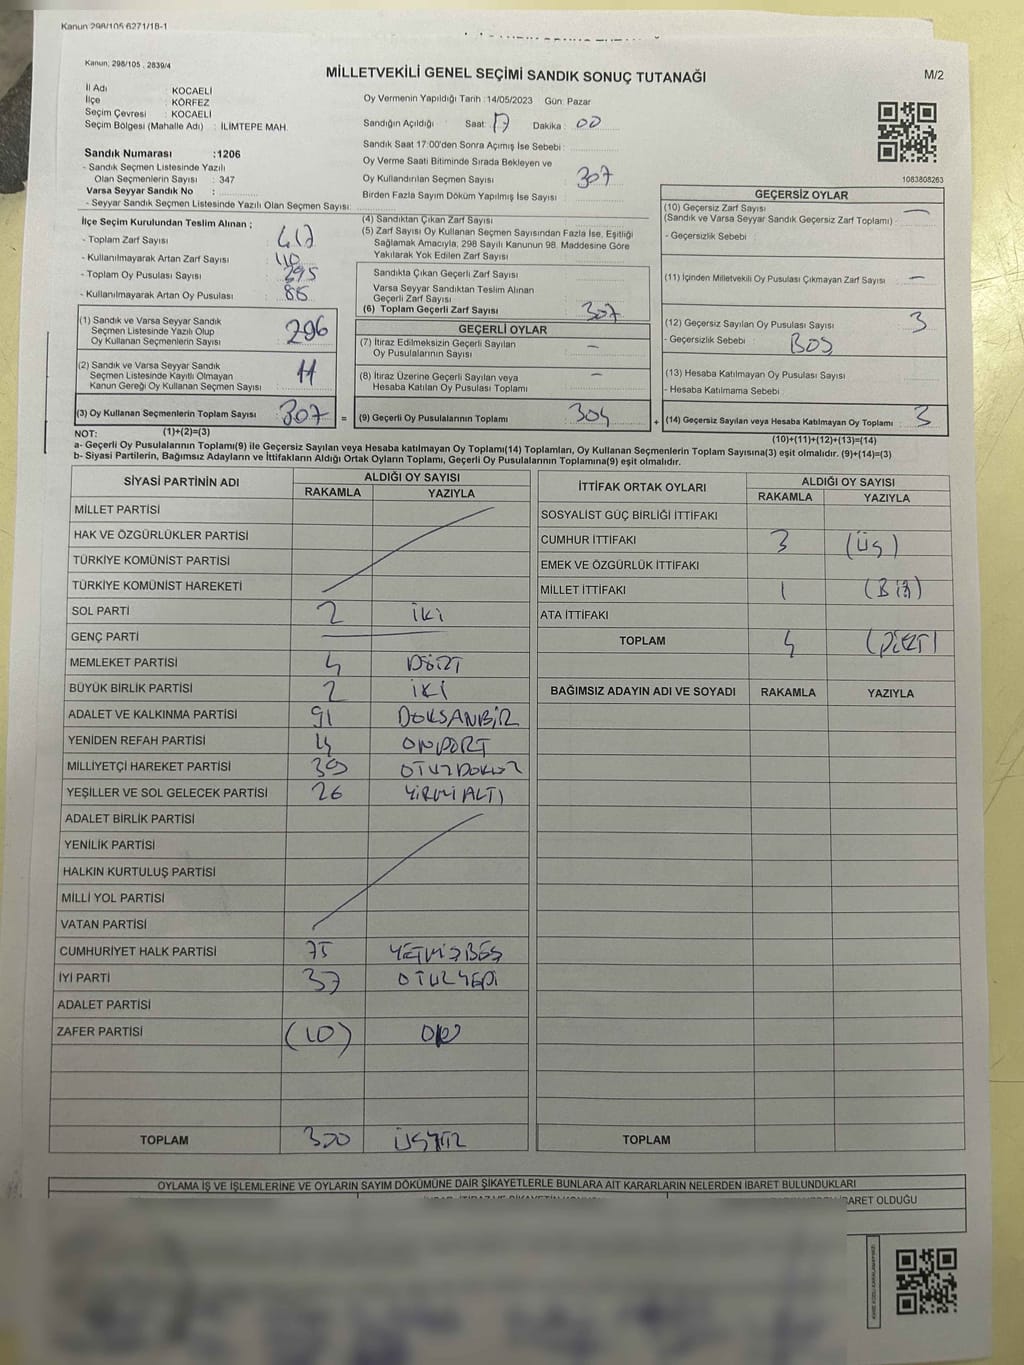 Kanun 298/105 6271/18-1
Kanun, 298/105 , 2839/4
MİLLETVEKİLİ GENEL SEÇİMİ SANDIK SONUÇ TUTANAĞI
M/2
İl Adı : KOCAELİ
İlçe : KÖRFEZ
Seçim Çevresi : KOCAELİ
Seçim Bölgesi (Mahalle Adı) : İLİMTEPE MAH.
Oy Vermenin Yapıldığı Tarih :14/05/2023 Gün: Pazar
Sandığın Açıldığı Saat: 17 Dakika : 00
Sandık Saat 17:00'den Sonra Açımış İse Sebebi :
Oy Verme Saati Bitiminde Sırada Bekleyen ve
Oy Kullandırılan Seçmen Sayısı : 307
Birden Fazla Sayım Döküm Yapılmış İse Sayısı :
1083808263
Sandık Numarası :1206
- Sandık Seçmen Listesinde Yazılı
Olan Seçmenlerin Sayısı : 347
Varsa Seyyar Sandık No :
- Seyyar Sandık Seçmen Listesinde Yazılı Olan Seçmen Sayısı:
İlçe Seçim Kurulundan Teslim Alınan ;
- Toplam Zarf Sayısı : 417
- Kullanılmayarak Artan Zarf Sayısı : 110
- Toplam Oy Pusulası Sayısı : 395
- Kullanılmayarak Artan Oy Pusulası : 88
(1) Sandık ve Varsa Seyyar Sandık
Seçmen Listesinde Yazılı Olup
Oy Kullanan Seçmenlerin Sayısı : 296
(2) Sandık ve Varsa Seyyar Sandık
Seçmen Listesinde Kayıtlı Olmayan
Kanun Gereği Oy Kullanan Seçmen Sayısı : 11
(3) Oy Kullanan Seçmenlerin Toplam Sayısı : 307 =
(4) Sandıktan Çıkan Zarf Sayısı
(5) Zarf Sayısı Oy Kullanan Seçmen Sayısından Fazla İse, Eşitliği
Sağlamak Amacıyla; 298 Sayılı Kanunun 98. Maddesine Göre
Yakılarak Yok Edilen Zarf Sayısı :
Sandıkta Çıkan Geçerli Zarf Sayısı
Varsa Seyyar Sandıktan Teslim Alınan
Geçerli Zarf Sayısı
(6) Toplam Geçerli Zarf Sayısı : 307
GEÇERLİ OYLAR
(7) İtiraz Edilmeksizin Geçerli Sayılan
Oy Pusulalarının Sayısı : –
(8) İtiraz Üzerine Geçerli Sayılan veya
Hesaba Katılan Oy Pusulası Toplamı : –
(9) Geçerli Oy Pusulalarının Toplamı : 304 +
GEÇERSİZ OYLAR
(10) Geçersiz Zarf Sayısı : –
(Sandık ve Varsa Seyyar Sandık Geçersiz Zarf Toplamı)
- Geçersizlik Sebebi :
(11) İçinden Milletvekili Oy Pusulası Çıkmayan Zarf Sayısı : –
(12) Geçersiz Sayılan Oy Pusulası Sayısı : 3
- Geçersizlik Sebebi : BOŞ
(13) Hesaba Katılmayan Oy Pusulası Sayısı :
- Hesaba Katılmama Sebebi :
(14) Geçersiz Sayılan veya Hesaba Katılmayan Oy Toplamı : 3
NOT: (1)+(2)=(3)
(10)+(11)+(12)+(13)=(14)
a- Geçerli Oy Pusulalarının Toplamı(9) ile Geçersiz Sayılan veya Hesaba katılmayan Oy Toplamı(14) Toplamları, Oy Kullanan Seçmenlerin Toplam Sayısına(3) eşit olmalıdır. (9)+(14)=(3)
b- Siyasi Partilerin, Bağımsız Adayların ve İttifakların Aldığı Ortak Oyların Toplamı, Geçerli Oy Pusulalarının Toplamına(9) eşit olmalıdır.
SİYASİ PARTİNİN ADI ALDIĞI OY SAYISI
RAKAMLA YAZIYLA
MİLLET PARTİSİ
HAK VE ÖZGÜRLÜKLER PARTİSİ
TÜRKİYE KOMÜNİST PARTİSİ
TÜRKİYE KOMÜNİST HAREKETİ
SOL PARTİ 2 İKİ
GENÇ PARTİ
MEMLEKET PARTİSİ 4 DÖRT
BÜYÜK BİRLİK PARTİSİ 2 İKİ
ADALET VE KALKINMA PARTİSİ 91 DOKSANBİR
YENİDEN REFAH PARTİSİ 14 ONDÖRT
MİLLİYETÇİ HAREKET PARTİSİ 39 OTUZDOKUZ
YEŞİLLER VE SOL GELECEK PARTİSİ 26 YİRMİALTI
ADALET BİRLİK PARTİSİ
YENİLİK PARTİSİ
HALKIN KURTULUŞ PARTİSİ
MİLLİ YOL PARTİSİ
VATAN PARTİSİ
CUMHURİYET HALK PARTİSİ 75 YETMİŞBEŞ
İYİ PARTİ 37 OTUZYEDİ
ADALET PARTİSİ
ZAFER PARTİSİ (10) ON
TOPLAM 300 ÜÇYÜZ
İTTİFAK ORTAK OYLARI ALDIĞI OY SAYISI
RAKAMLA YAZIYLA
SOSYALİST GÜÇ BİRLİĞİ İTTİFAKI
CUMHUR İTTİFAKI 3 (ÜÇ)
EMEK VE ÖZGÜRLÜK İTTİFAKI
MİLLET İTTİFAKI 1 (BİR)
ATA İTTİFAKI
TOPLAM 4 (DÖRT)
BAĞIMSIZ ADAYIN ADI VE SOYADI RAKAMLA YAZIYLA
TOPLAM
OYLAMA İŞ VE İŞLEMLERİNE VE OYLARIN SAYIM DÖKÜMÜNE DAİR ŞİKAYETLERLE BUNLARA AİT KARARLARIN NELERDEN İBARET BULUNDUKLARI
İBARET OLDUĞU